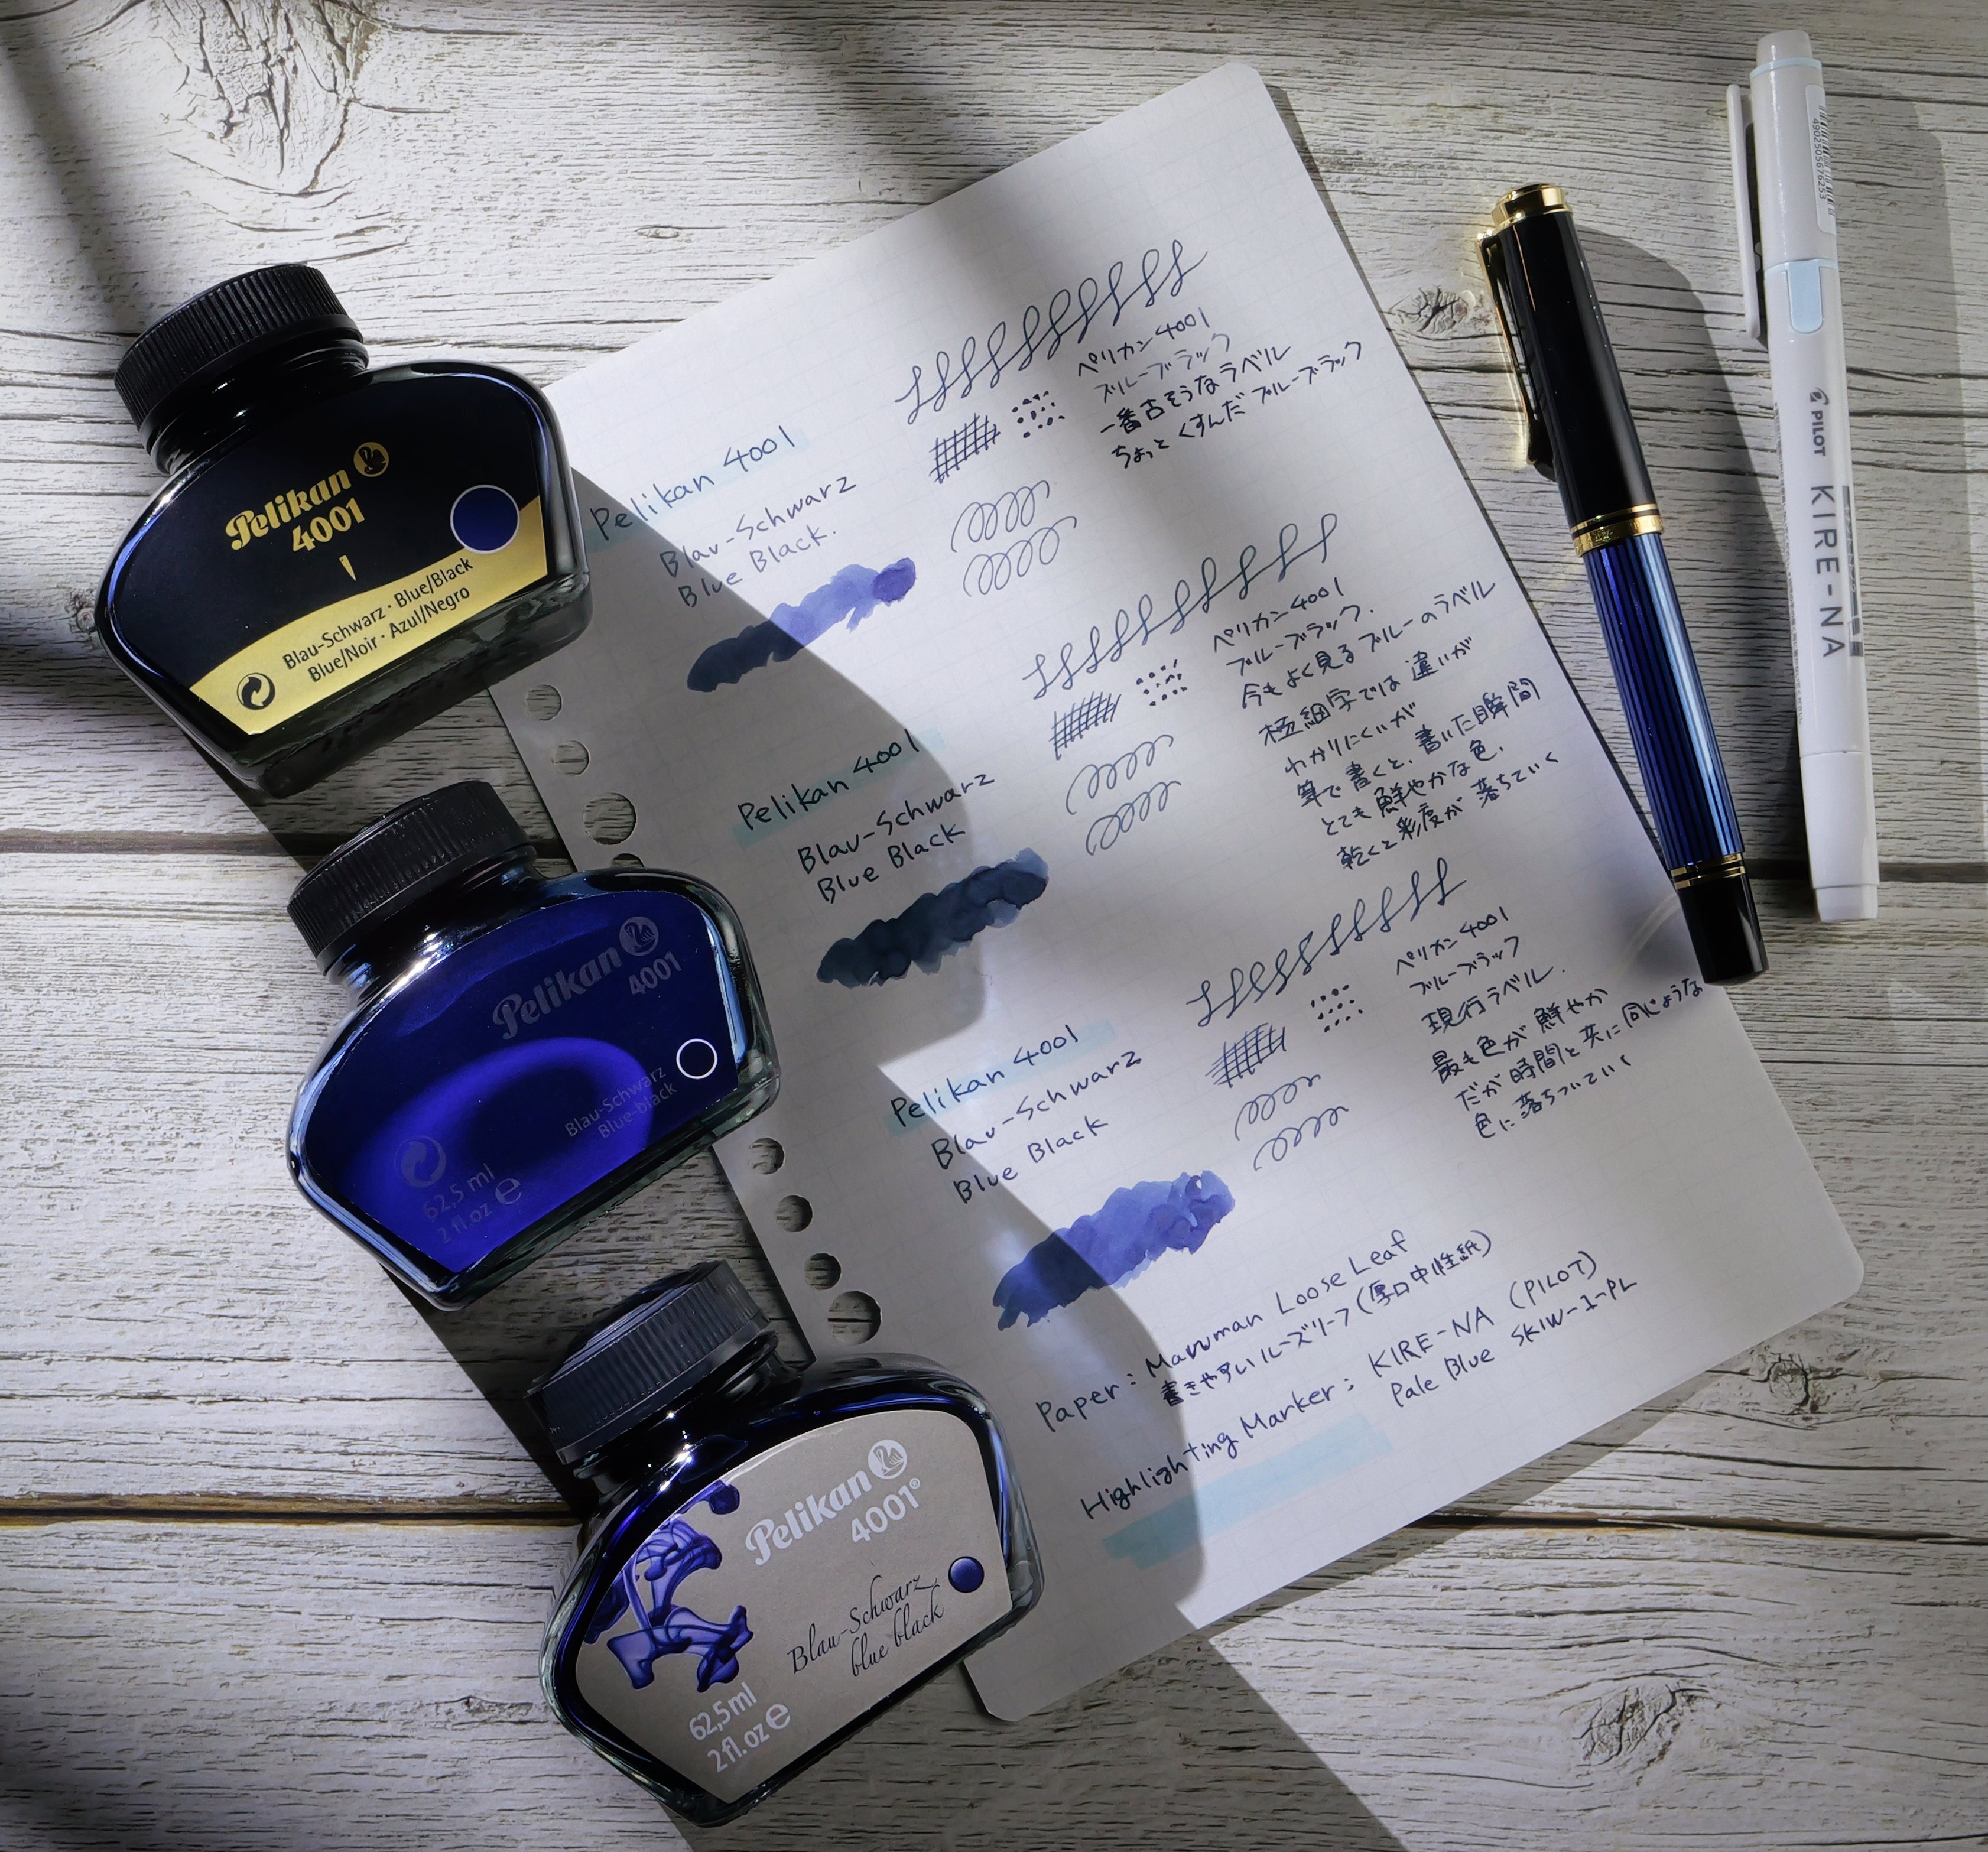 Pelikan
4001
Blau-Schwarz · Blue/Black
Blue/Noir · Azul/Negro
Pelikan
4001
Blau-Schwarz
Blue-black
62,5 ml
2 fl.oz e
Pelikan
4001®
Blau-Schwarz
blue black
62,5 ml
2 fl.oz e
Pelikan 4001
Blau-Schwarz
Blue Black.
ペリカン4001
ブルーブラック
一番古そうなラベル
ちょっとくすんだブルーブラック
Pelikan 4001
Blau-Schwarz
Blue Black
ペリカン4001
ブルーブラック.
今もよく見るブルーのラベル
極細字では違いが
わかりにくいが
筆で書くと、書いた瞬間
とても鮮やかな色.
乾くと彩度が落ちていく
Pelikan 4001
Blau-Schwarz
Blue Black
ペリカン4001
ブルーブラック
現行ラベル.
最も色が鮮やか
だが時間と共に同じような
色に落ちついていく
Paper: Maruman Loose Leaf
書きやすいルーズリーフ(厚口中性紙)
Highlighting Marker: KIRE-NA (PILOT)
Pale Blue SKIW-1-PL
PILOT
KIRE-NA
4902505676253